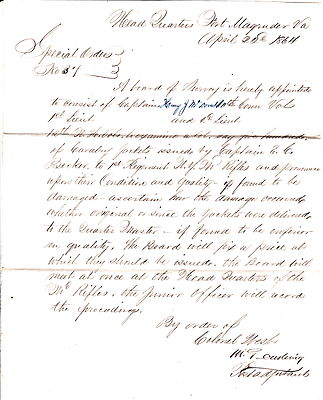 Head Quarters Fort Magruder Va
April 22d 1864
Special Orders
No 37
A board of Survey is hereby appointed
to consist of Captain Henry J Mc Donald 10th Conn Vols
1st Lieut and 2d Lieut
of Cavalry Jackets issued by Captain C. C.
to 1st Regiment N.Y. Mt Rifles and pronounce
upon their Condition and quality - if found to be
damaged - ascertain how the damage occurred
whether original or since the Jackets were delivered
to the Quarter Master - if found to be inferior
in quality. The Board will fix a price at
which they should be issued. the Board will
meet at once at the Head Quarters of the
Mt Rifles. the Junior Officer will record
the proceedings.
By order of
Colonel West